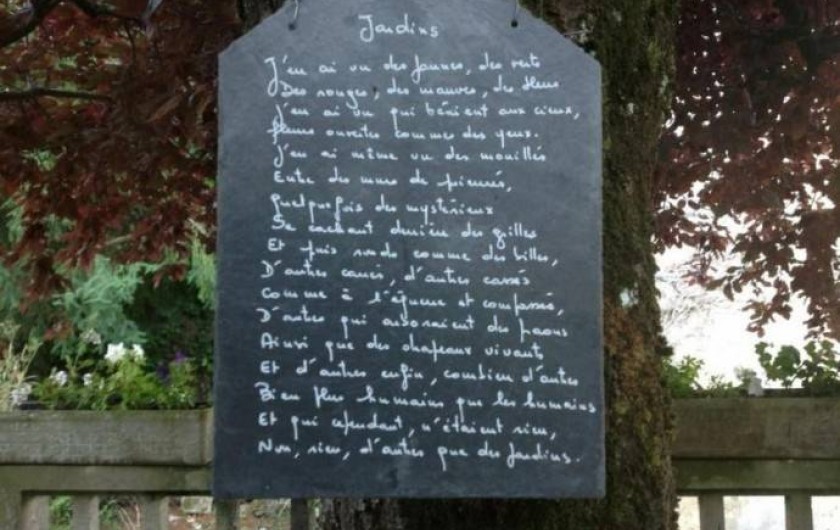 Jardins
J'en ai vu des jaunes, des verts
Des rouges, des mauves, des bleus
J'en ai vu qui bénient aux cieux,
fleurs ouvertes comme des yeux.
J'en ai même vu des mouillés
Entre des murs de pierres,
quelquefois des mystérieux
Se cachant derrière des grilles
Et puis ronds comme des billes,
D'autres carrés, d'autres cassés
Comme à l'équerre et compassés,
D'autres qui arboraient des paons
Ainsi que des chapeaux vivants
Et d'autres enfin, combien d'autres
Bien plus humains que les humains
Et qui cependant, n'étaient rien,
Non, rien, d'autres que des Jardins.